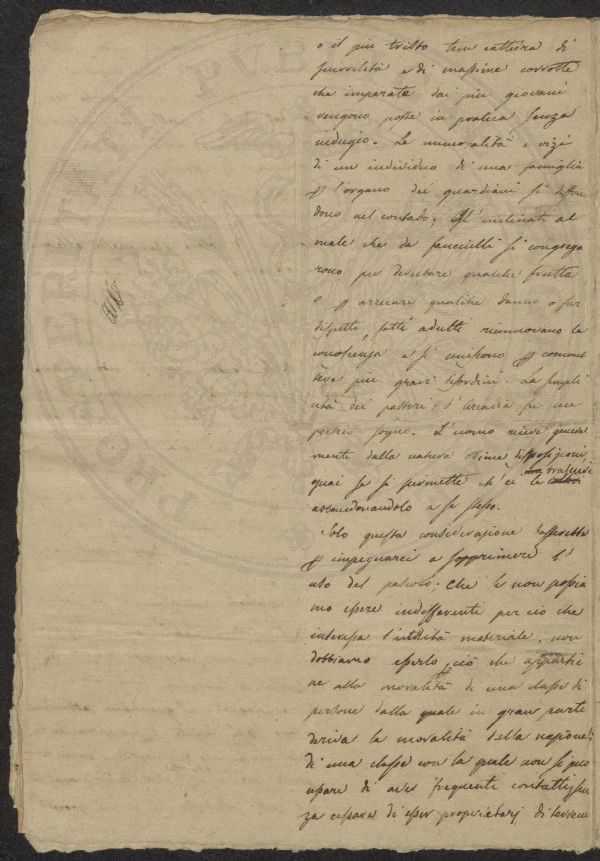 o il piu tristo tien cattedra di
scurrilità e di massime corrotte
che imparate dai più giovani
vengono poste in pratica senza
indugio. Le immoralità e vizi
di un individuo di una famiglia
p l'organo dei guardiani si diffon
dono nel contado; Gl'inclinati al
male che da fanciulli si congrega
rono per derubare qualche frutta
o p arrecare qualche danno o far
dispetti, fatti adulti rinnuovano la
conoscenza e si uniscono p commet
tere più gravi disordini. La sempli
cità dei pastori d'Arcadia fu un
poetico sogno. L'uomo riceve general
mente dalla natura ottime disposizioni,
quai se si permette ch'ei le
abbandonandolo a se stesso.
Solo questa considerazione basterebbe
p impegnarci a sopprimere l'
uso del pascolo. Che se non possia
mo essere indifferenti per ciò che
interessa l'utilità materiale, non
dobbiamo esserlo p ciò che apparti
ne alla moralità di una classe di
persone dalla quale in gran parte
deriva la moralità della nazione;
di una classe con la quale non si può
isfare di aver frequenti contatti, sen
za cessare di esser proprietarj di terreni